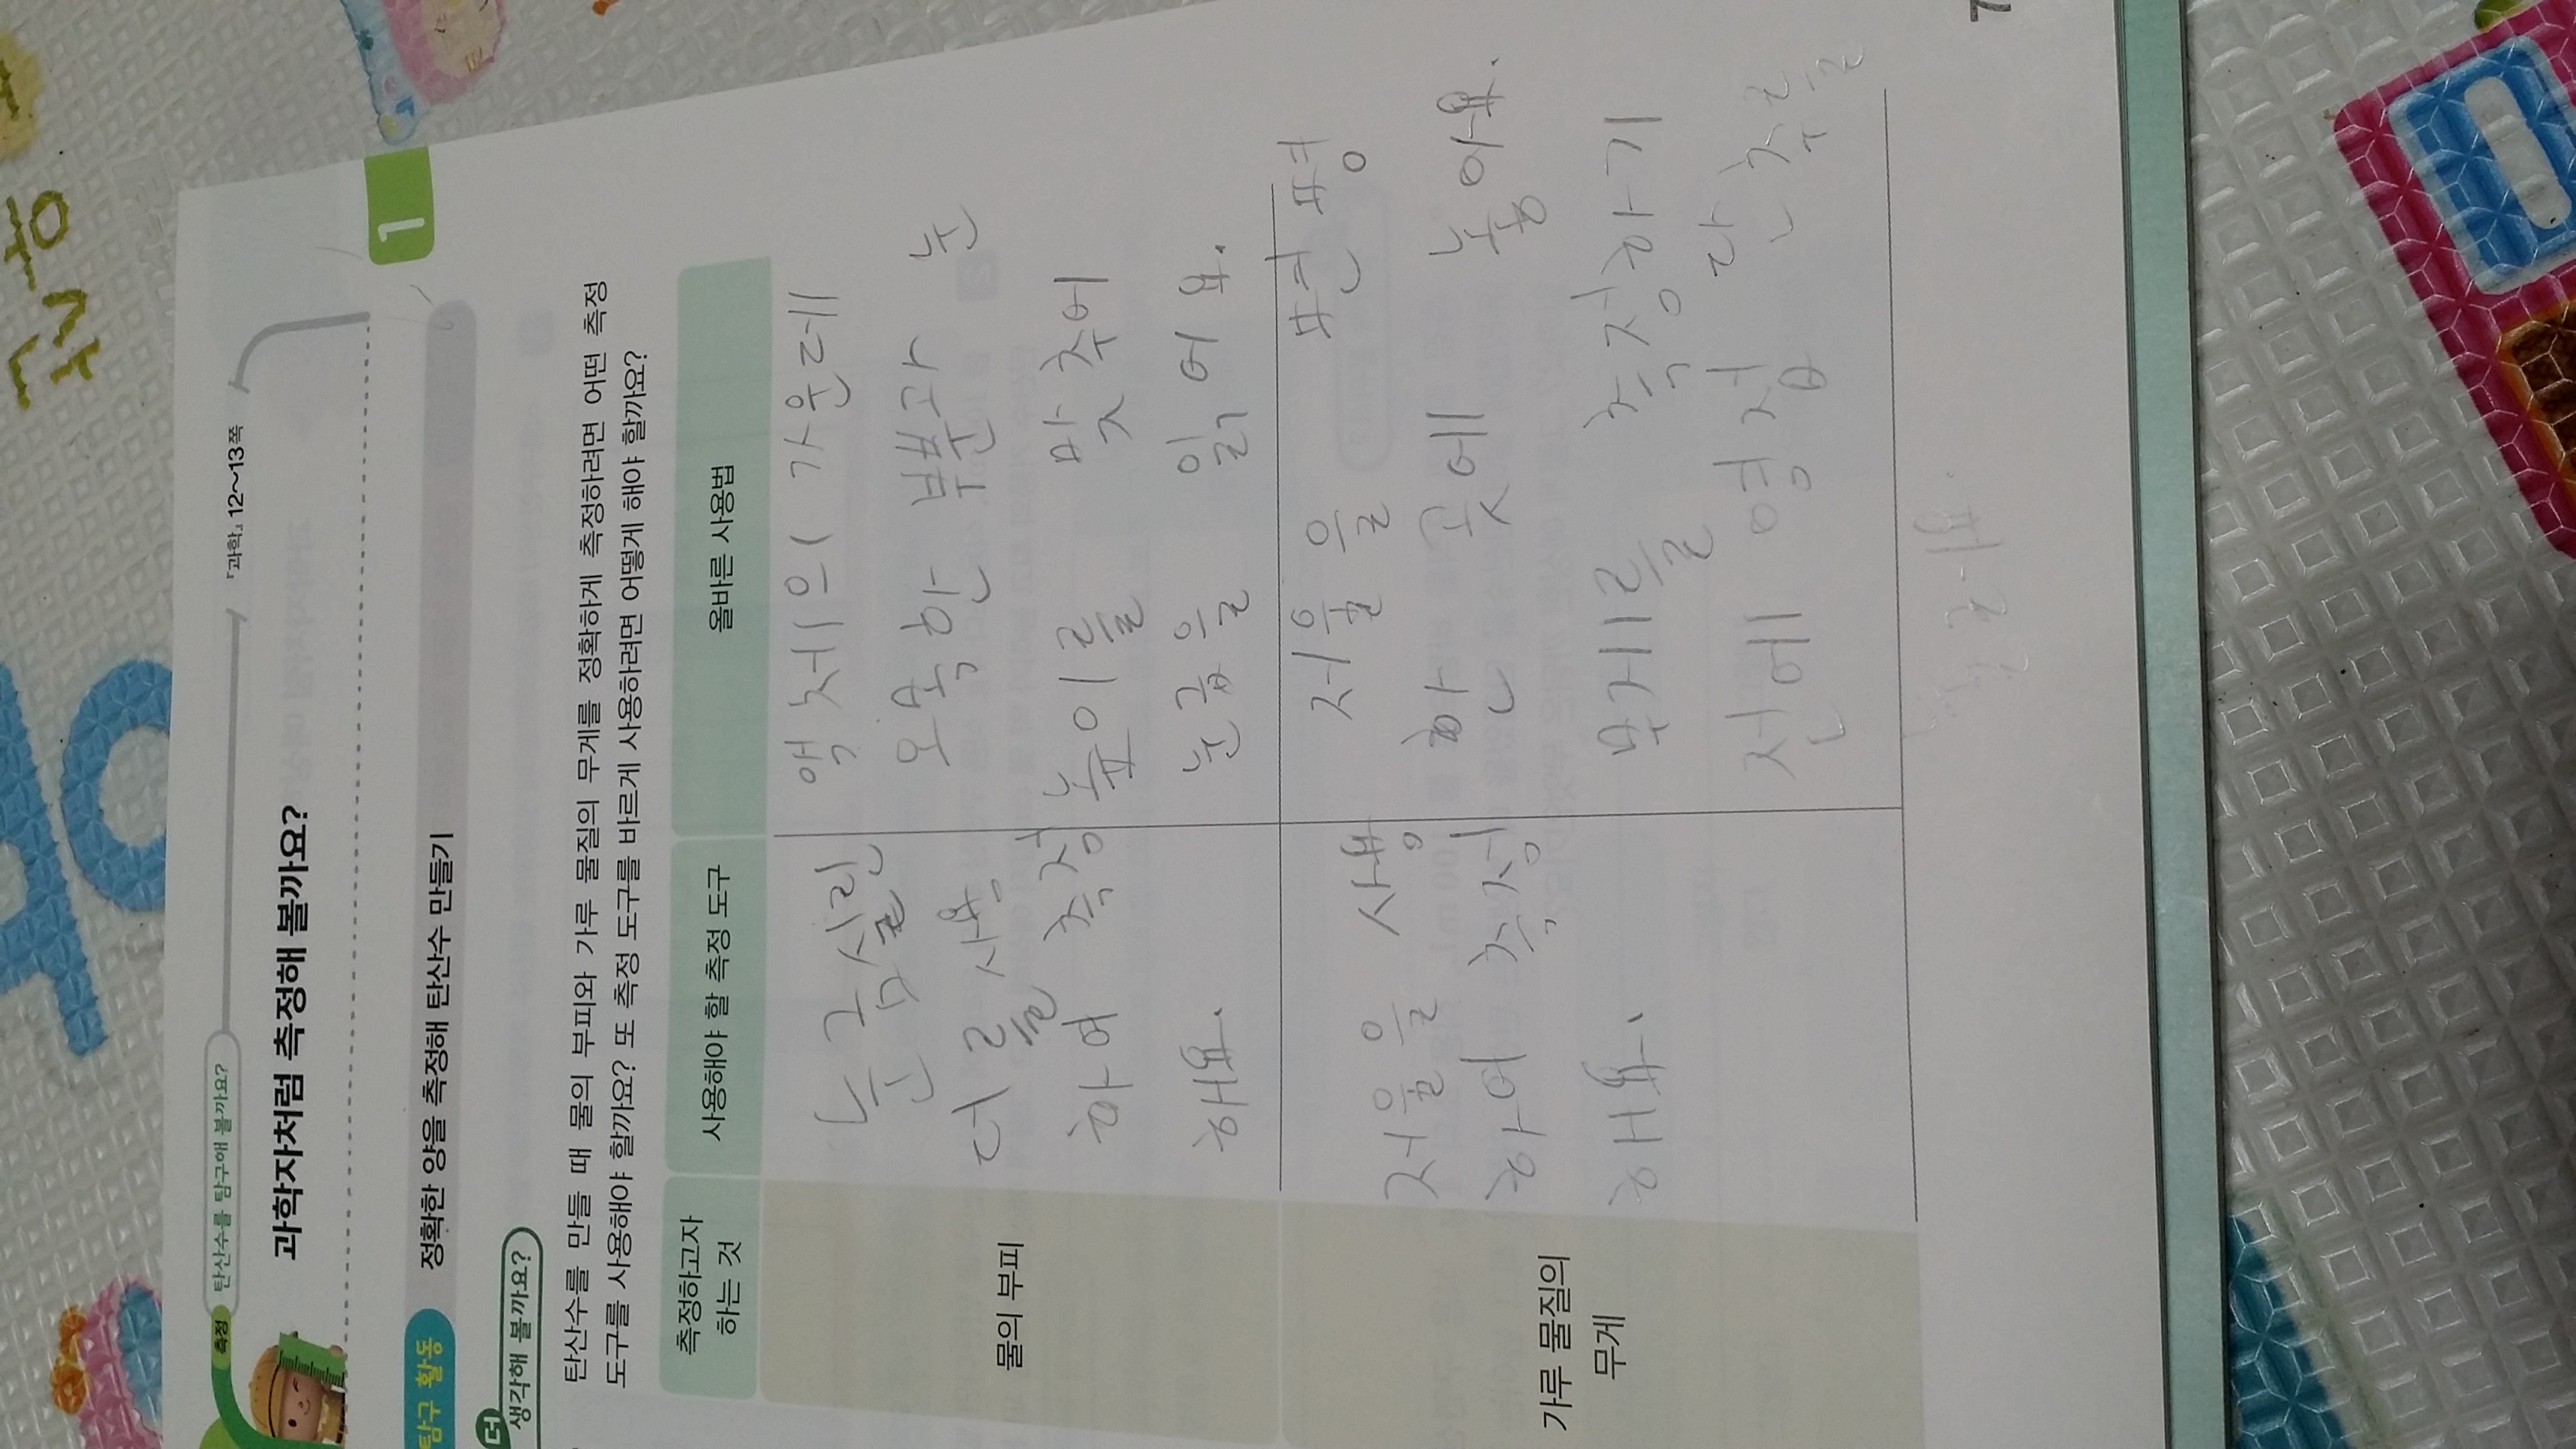 측정 탄산수를 탐구해 볼까요?
『과학』 12~13쪽
과학자처럼 측정해 볼까요?
탐구 활동 정확한 양을 측정해 탄산수 만들기
1
더 생각해 볼까요?
탄산수를 만들 때 물의 부피와 가루 물질의 무게를 정확하게 측정하려면 어떤 측정
도구를 사용해야 할까요? 또 측정 도구를 바르게 사용하려면 어떻게 해야 할까요?
측정하고자
하는 것
사용해야 할 측정 도구
올바른 사용법
물의 부피
눈금실린
더를 사용
하여 측정
해요.
액체의 가운데
오목한 부분과 눈
높이를 맞추어
눈금을 읽어요.
가루 물질의
무게
저울을 사용
하여 측정
해요.
저울을 편평
한 곳에 놓아요.
무게를 측정하기
전에 영점 단추를
눌러요.
7